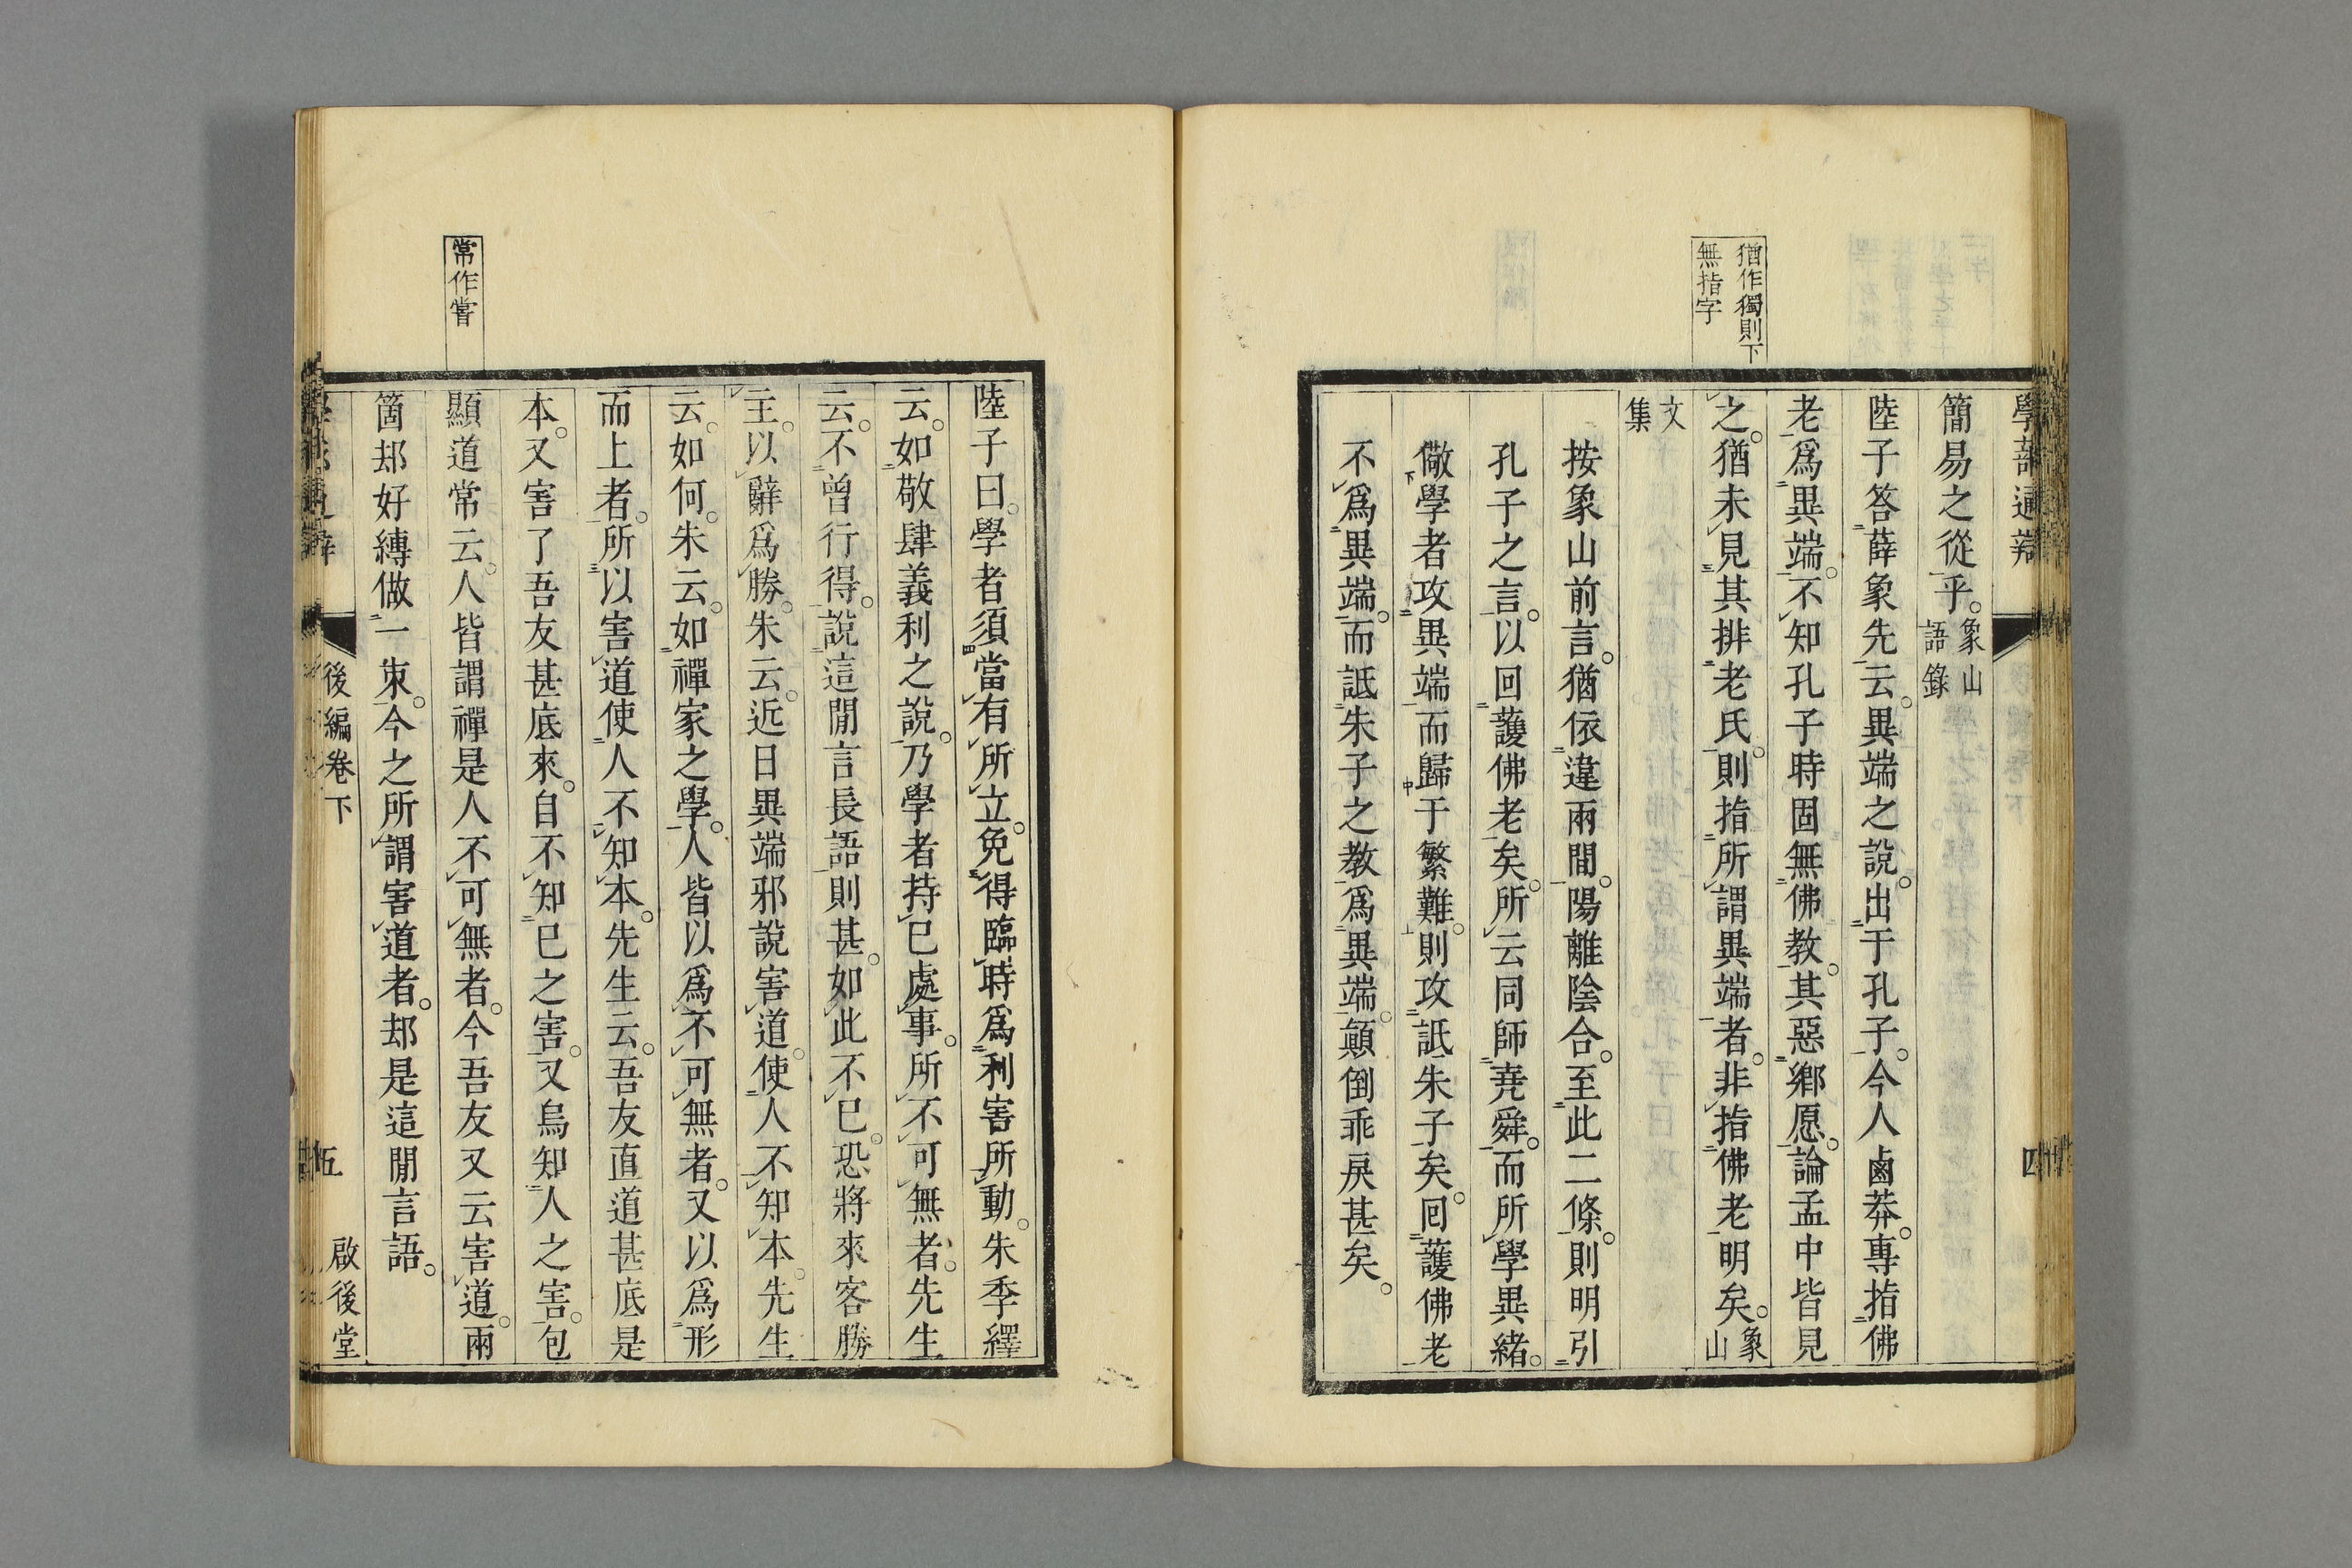 學蔀通辯
四
猶作獨則下
無指字
簡易之從乎。象山語錄
陸子答薛象先云。異端之說。出于孔子。今人鹵莽。專指佛
老爲異端。不知孔子時固無佛教。其惡鄉愿。論孟中皆見
之。猶未見其排老氏。則指所謂異端者。非指佛老明矣。象山
文集
按象山前言。猶依違兩間。陽離陰合。至此二條。則明引
孔子之言。以回護佛老矣。所云同師堯舜。而所學異緒。
儆學者攻異端而歸于繁難。則攻詆朱子矣。回護佛老
不爲異端。而詆朱子之教爲異端。顛倒乖戾甚矣。
常作嘗
陸子曰。學者須當有所立。免得臨時爲利害所動。朱季繹
云。如敬肆義利之說。乃學者持已處事。所不可無者。先生
云。不曾行得。說這閒言長語則甚。如此不已。恐將來客勝
主。以辭爲勝。朱云。近日異端邪說害道。使人不知本。先生
云。如何。朱云。如禪家之學。人皆以爲不可無者。又以爲形
而上者。所以害道使人不知本。先生云。吾友直道甚底是
本。又害了吾友甚底來。自不知已之害。又烏知人之害。包
顯道常云。人皆謂禪是人不可無者。今吾友又云害道。兩
箇却好縛做一束。今之所謂害道者。却是這閒言語。
後編卷下
五
啟後堂